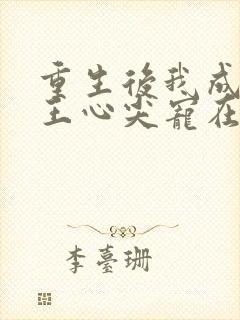 重生後我成
王心尖寵在
李臺珊